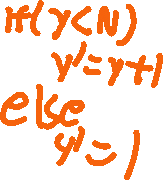 if(y<N)
y'=y+1
else
y'=1